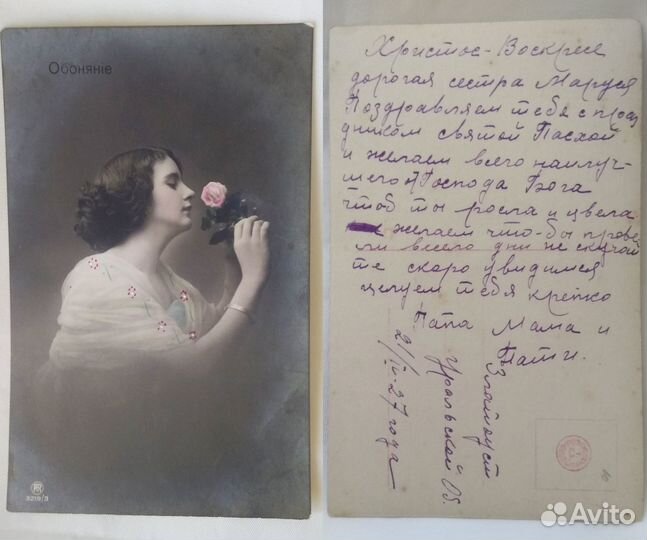 Обонянiе
3219/3
Христос-Воскресе
дорогая сестра Маруся
Поздравляем тебя с праз
дником святой Пасхой
и желаем всего наилуч-
шего Господа Бога
чтоб ты росла и цвела
желаем что-бы прове
ли весело дни не скучай
те скоро увидимся
целуем тебя крепко
Папа Мама и
Златоуст
Уральской Об.
21/IV-27 года
Avito